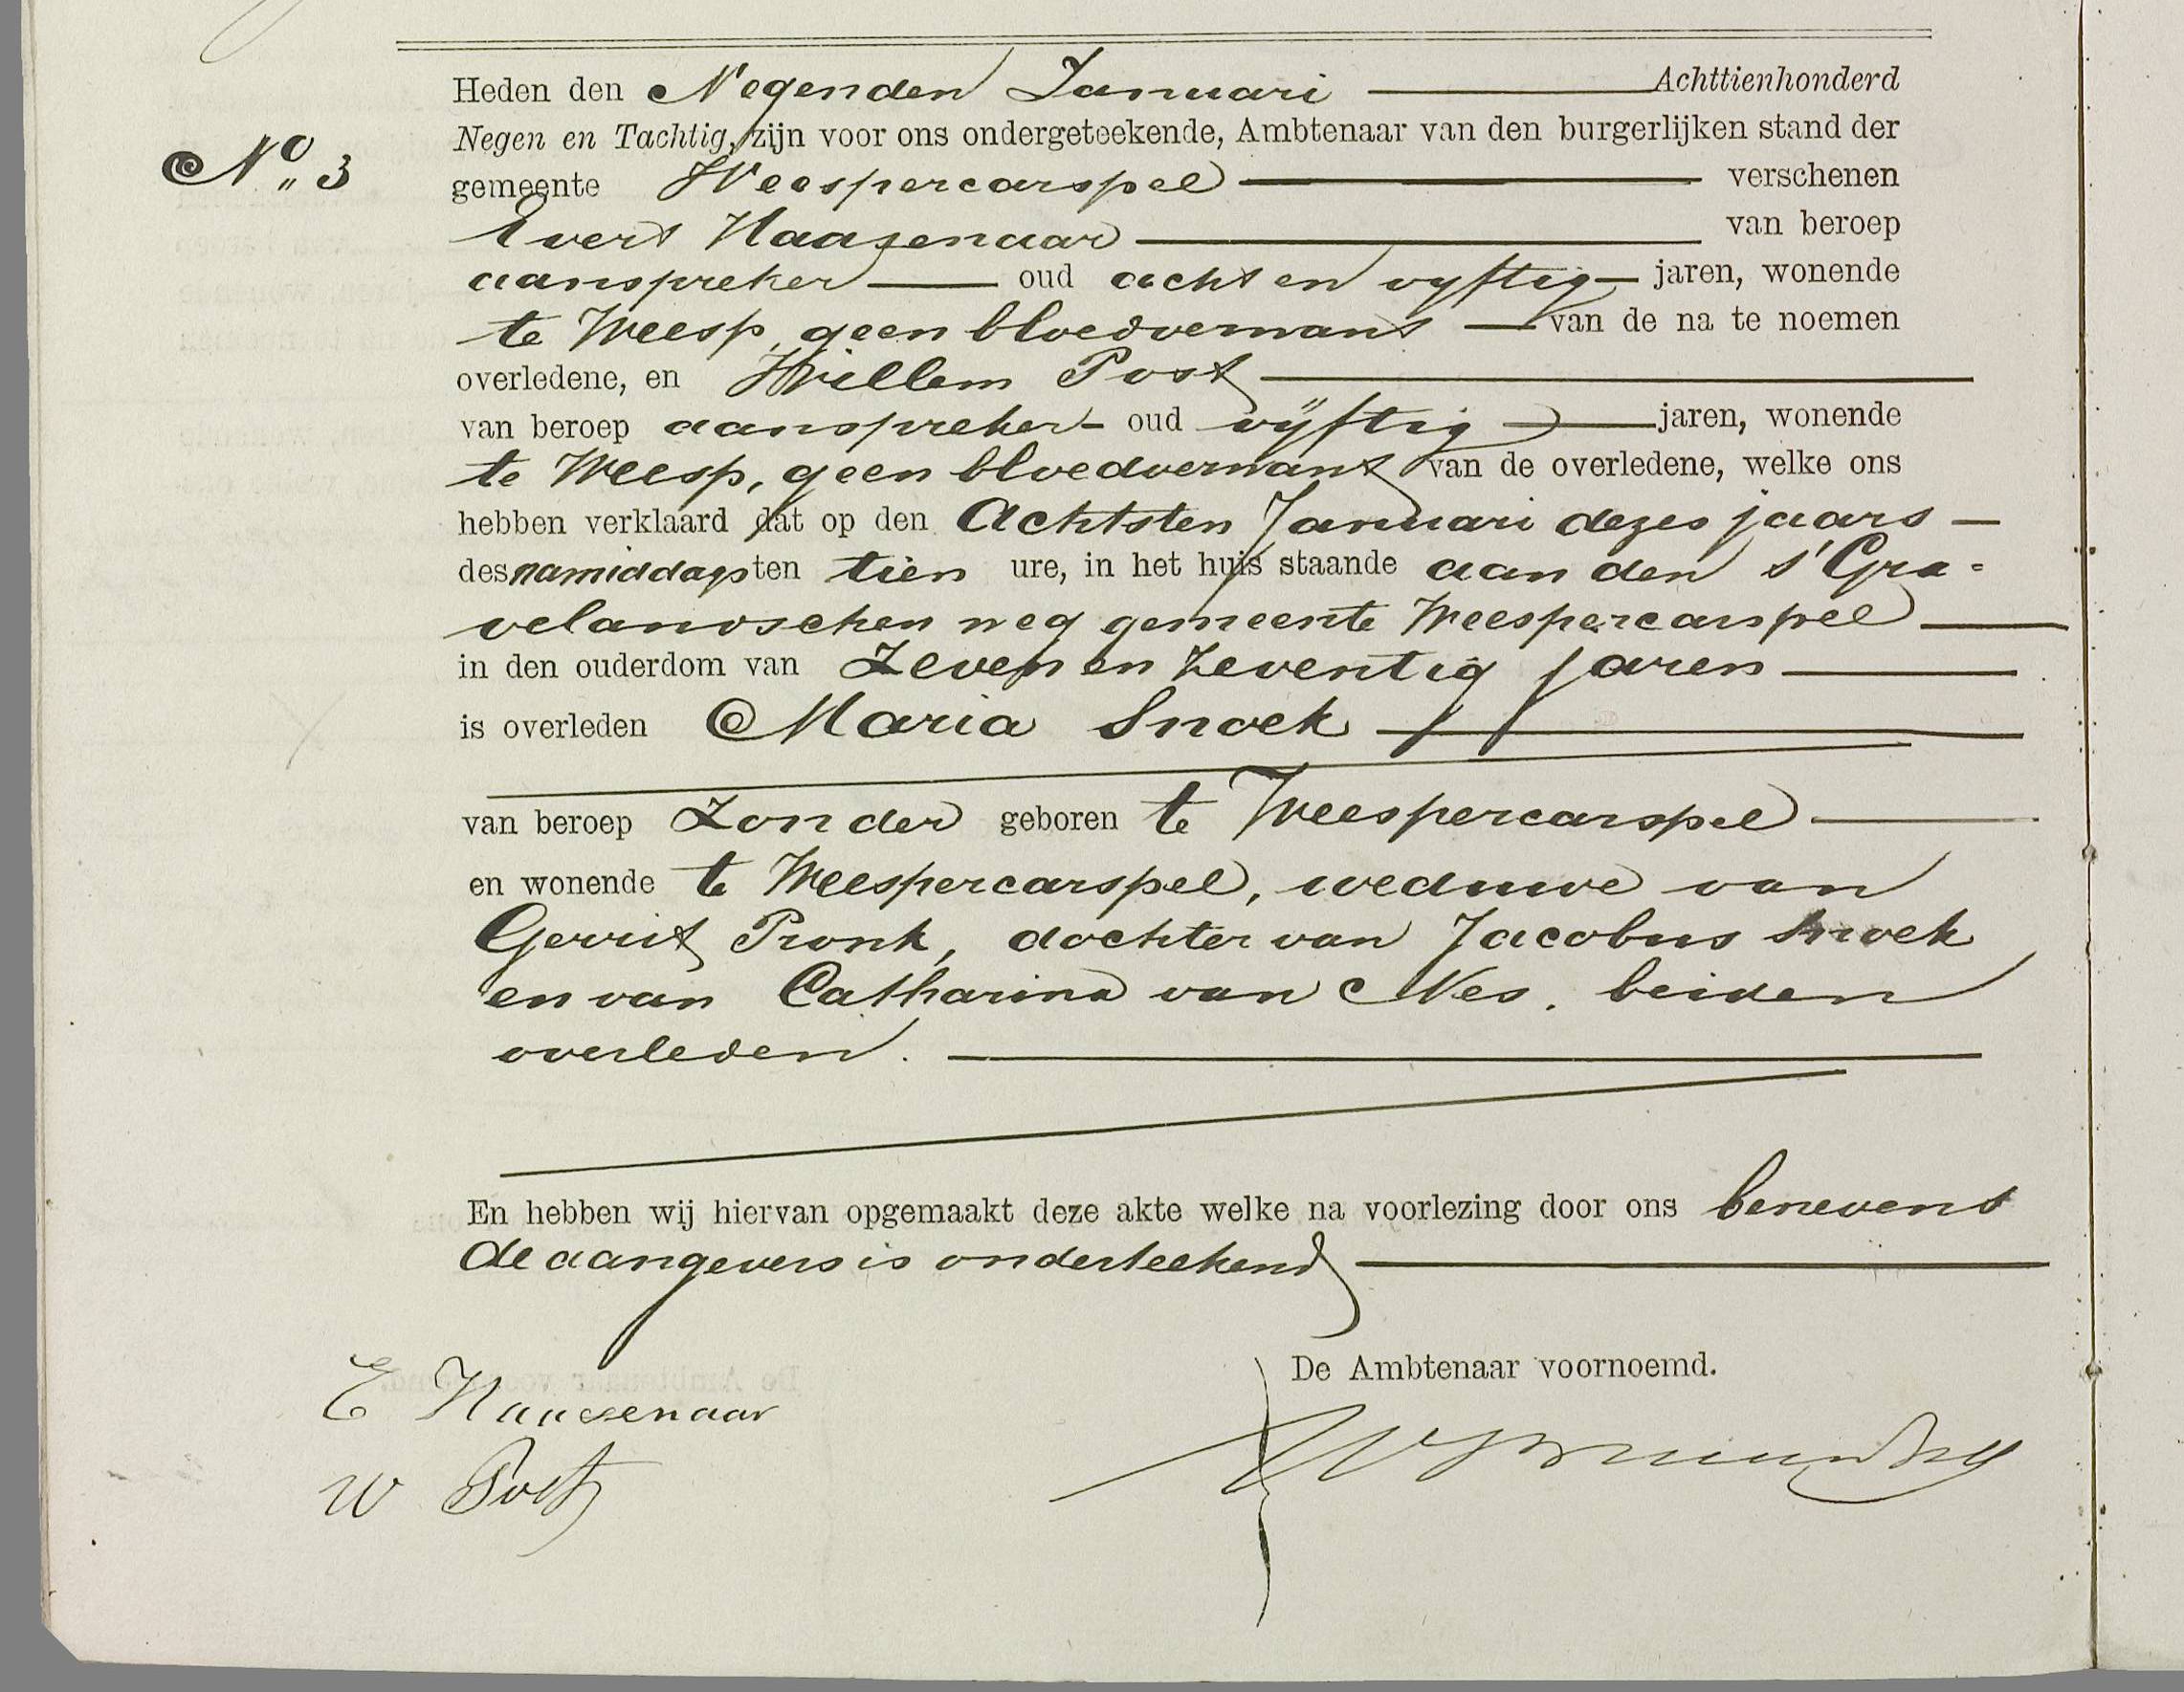 Heden den Negenden Januari Achttienhonderd
Negen en Tachtig, zijn voor ons ondergeteekende, Ambtenaar van den burgerlijken stand der
No. 3
gemeente Weespercarspel verschenen
Evert Haasenaar van beroep
aanspreker oud acht en vyftig jaren, wonende
te Weesp, geen bloedverwant van de na te noemen
overledene, en Willem Post
van beroep aanspreker oud vijftig jaren, wonende
te Weesp, geen bloedverwant van de overledene, welke ons
hebben verklaard dat op den Achtsten Januari dezes jaars
des namiddags ten tien ure, in het huis staande aan den s'Gra-
velandschen weg gemeente Weespercarspel
in den ouderdom van Zeven en Zeventig jaren
is overleden Maria Snoek
van beroep Zonder geboren te Weespercarspel
en wonende te Weespercarspel, weduwe van
Gerrit Pronk, dochter van Jacobus Snoek
en van Catharina van Nes, beiden
overleden.
En hebben wij hiervan opgemaakt deze akte welke na voorlezing door ons benevens
de aangevers is onderteekend
De Ambtenaar voornoemd.
E Haasenaar
W Post